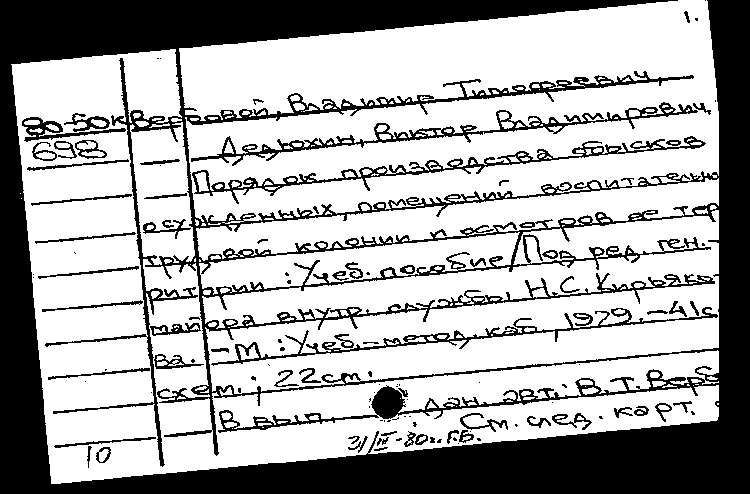 1.
80-50к Вербовой, Владимир Тимофеевич,
698 Дедюхин, Виктор Владимирович.
Порядок производства обысков
осужденных, помещений воспитательно-
трудовой колонии и осмотров ее тер-
ритории : Учеб. пособие / Под ред. ген.-
майора внутр. службы Н.С. Кирьяко-
ва. - М. : Учеб.-метод. каб., 1979. - 41 с.
схем.; 22 см.
В вып. дан. авт.: В.Т. Верб
См. след. карт.
10 31/III-80г. Г.Б.